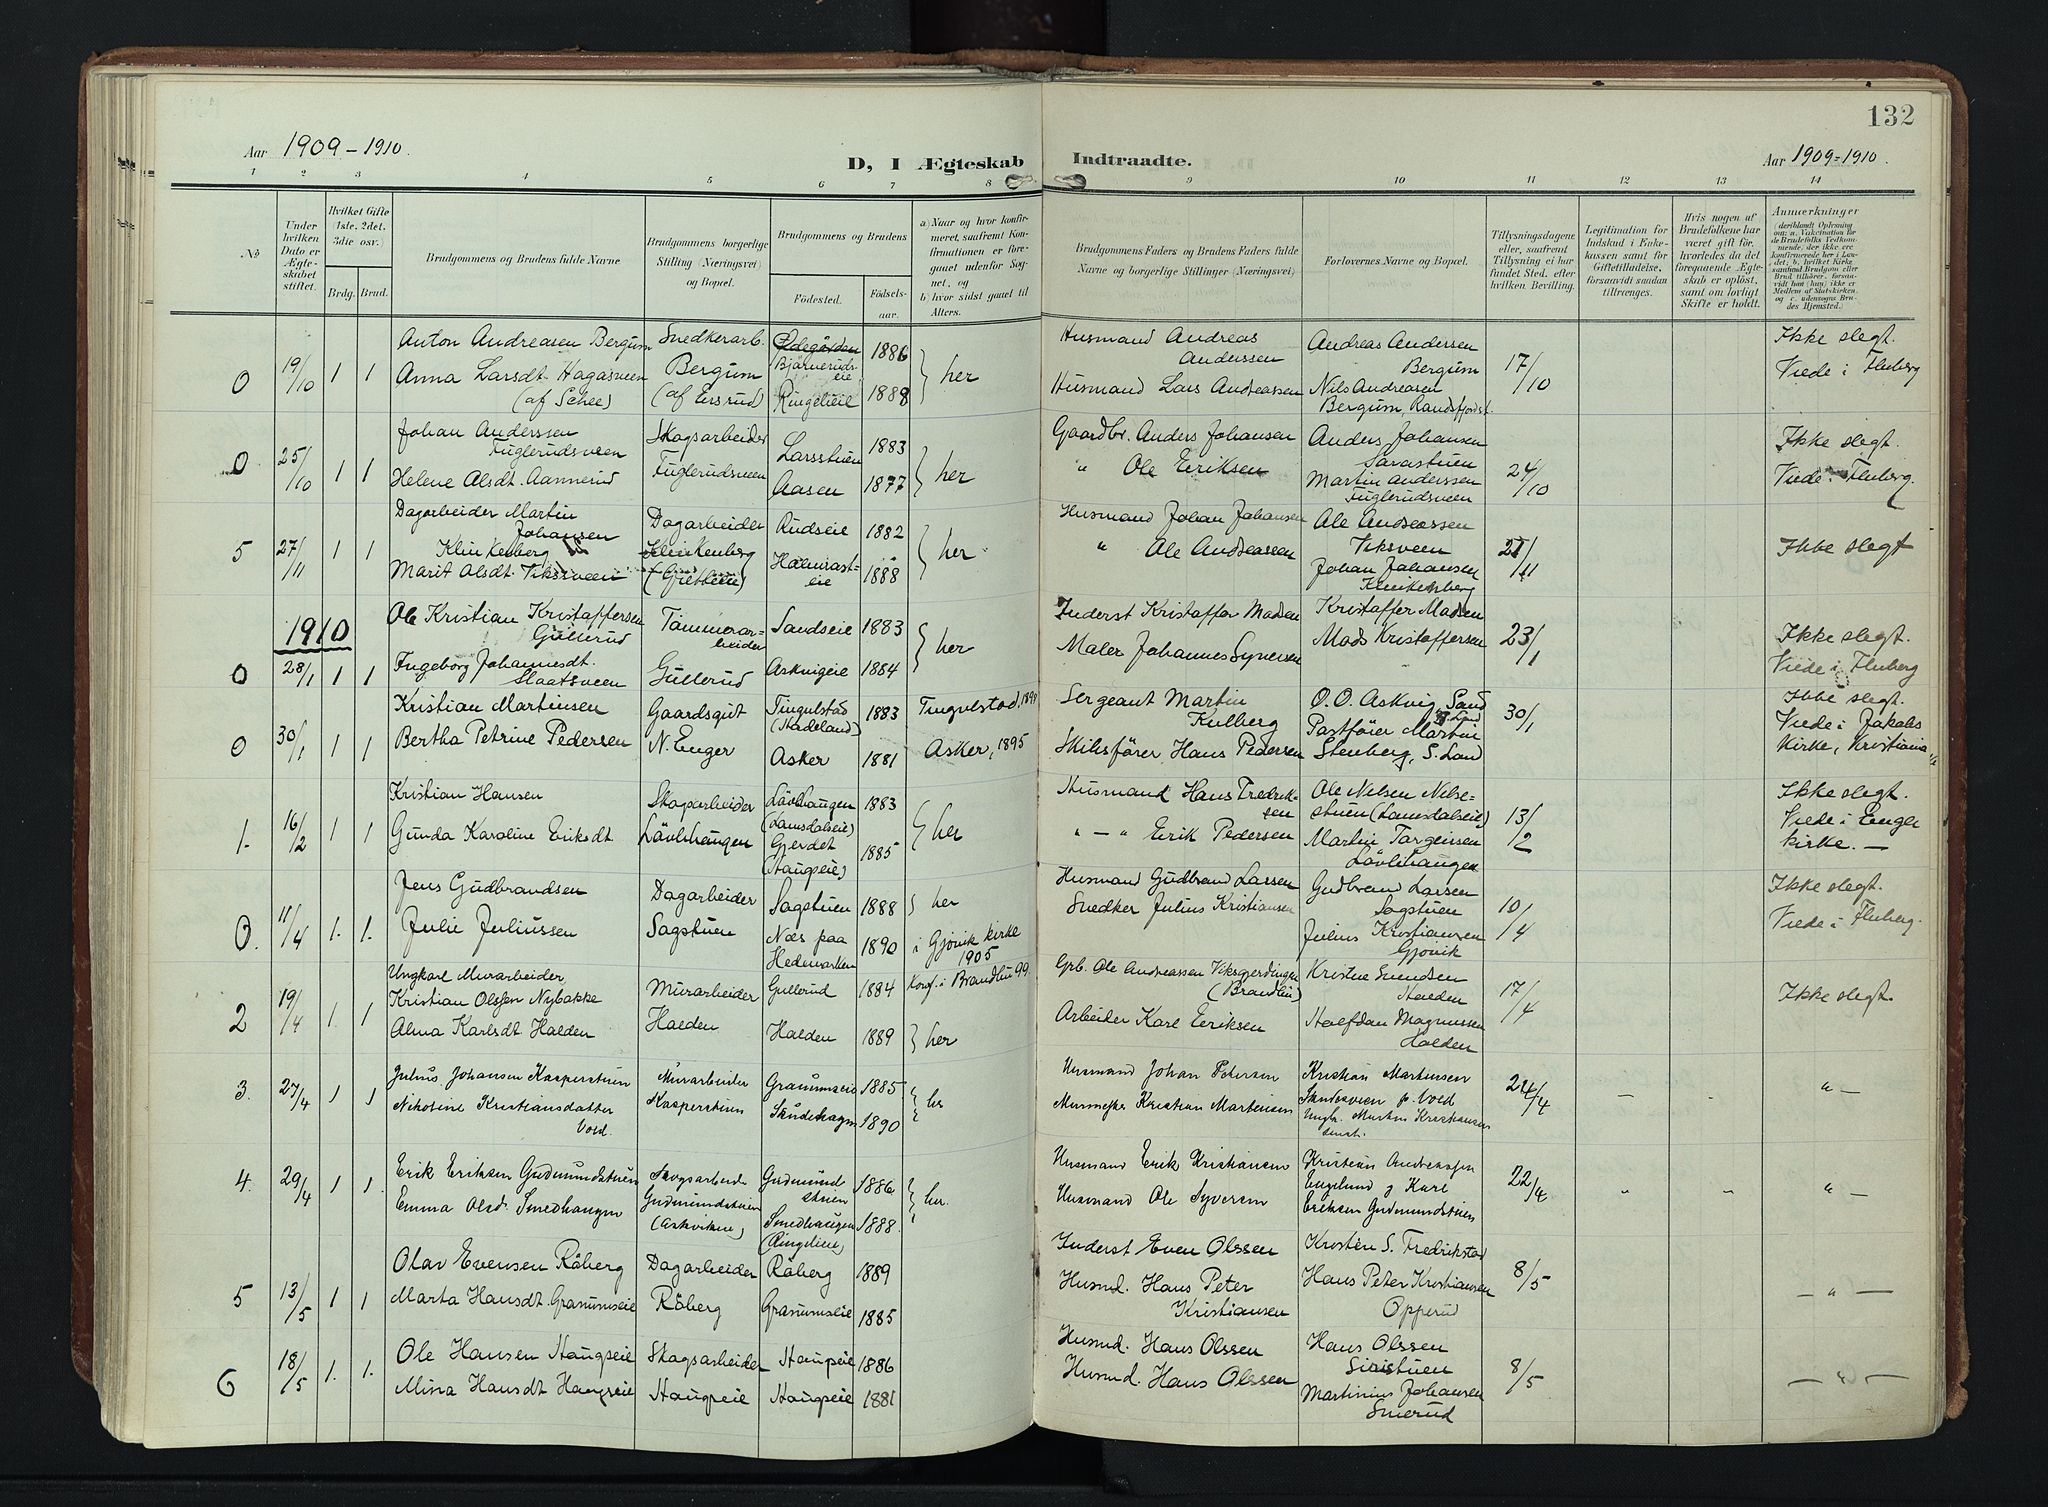 132
Aar 1909-1910.
D, I Ægteskab Indtraadte.
Aar 1909-1910.
1 2 3 4 5 6 7 8 9 10 11 12 13 14
No
Under hvilken Dato er Ægteskabet stiftet.
Hvilket Gifte (1ste. 2det. 3die osv.)
Brdg. Brud.
Brudgommens og Brudens fulde Navne
Brudgommens borgerlige Stilling (Næringsvei) og Bopæl.
Brudgommens og Brudens
Fødested. Fødselsaar.
a) Naar og hvor konfirmeret, saafremt Konfirmationen er foregaaet udenfor Sognet, og
b) hvor sidst gaaet til Alters.
Brudgommens Faders og Brudens Faders fulde Navne og borgerlige Stillinger (Næringsvei)
Forlovernes Navne og Bopæl.
Tillysningsdagene eller, saafremt Tillysning ei har fundet Sted, efter hvilken Bevilling.
Legitimation for Indskud i Enkekassen samt for Giftetilladelse, forsaavidt saadan tiltrænges.
Hvis nogen af Brudefolkene har været gift før, hvorledes da det foregaaende Ægteskab er opløst, samt om lovligt Skifte er holdt.
Anmærkninger
0 19/10 1 1 Anton Andreasen Bergum Snedkerarb. Bjørnerudseie 1886 } her Husmand Andreas Anderssen Andreas Andersen Bergum 17/10 Ikke slegt.
Anna Larsdt. Hagasveen Bergum Ringelieie 1888 Husmand Lars Andreassen Nils Andreasen Viede i Fluberg
Bergum, Randsfjord
0 25/10 1 1 Johan Anderssen Fuglerudsveen Skogsarbeider Larsstuen 1883 } her Gaardbr. Anders Johansen Anders Johansen 24/10 Ikke slegt.
Helene Olsdt. Aannerud Fuglerudsveen Aasen 1877 " Ole Eriksen Martin Anderssen Fuglerudsveen Viede i Fluberg.
5 27/11 1 1 Dagarbeider Martin Johansen Klinkenberg Dagarbeider Rudseie 1882 } her Husmand Johan Johansen Ole Andreassen Viksveen 21/11 Ikke slegt
Marit Olsdt. Viksveen Klinkenberg 1888 " Ole Andreassen Johan Johansen Klinkenberg
1910
0 28/1 1 1 Ole Kristian Kristoffersen Gullerud Tømmerarbeider Sandseie 1883 } her Inderst Kristoffer Madsen Kristoffer Madsen 23/1 Ikke slegt.
Ingeborg Johannesdt. Slaatsveen Gullerud Askvigeie 1884 Maler Johannes Syversen Mads Kristoffersen Viede i Fluberg
0 30/1 1 1 Kristian Martinsen Gaardsgut Tingelstad (Hadeland) 1883 Tingelstad, Sergeant Martin Kulberg O. O. Askvig, 30/1 Ikke slegt.
Bertha Petrine Pedersen N. Enger Asker 1881 Asker, 1895 Skibsfører Hans Pedersen Postfører Martin Stenberg, S. Land Viede i Jakobs Kirke, Kristiania
1. 16/2 1 1 Kristian Hansen Skogarbeider Løvlihaugen (Lomsdalseie) 1883 } her Husmand Hans Fredriksen Ole Nelsen Nilsestuen (Lomsdalseie) 13/2 Ikke slegt.
Gunda Karoline Eriksdt Løvlihaugen Gjerdet (Haugseie) 1885 " — " Erik Pedersen Martin Torgersen Løvlihaugen Viede i Enger kirke. —
0. 11/4 1. 1. Jens Gudbrandsen Dagarbeider Sagstuen 1888 } her Husmand Gudbrand Larssen Gudbrand Larssen Sagstuen 10/4 Ikke slegt.
Julie Juliussen Sagstuen Næs paa Hedmarken 1890 i Gjøvik kirke 1905 Snedker Julius Kristiansen Julius Kristiansen Gjøvik Viede i Fluberg.
2 19/4 1 1 Ungkarl Murarbeider Kristian Olssen Nybakke Murarbeider Gullerud 1884 Konf. i Brandbu 99 Grb. Ole Andreassen Viksgjerdingen (Brandbu) Kristen Svendsen Halden 17/4 Ikke slegt.
Alma Karlsdt Halden Halden Halden 1889 } her Arbeider Karl Eriksen Halfdan Magnussen Halden
3. 27/4 1 1 Julius Johansen Kasperstuen Murarbeider Granumseie 1885 } her Husmand Johan Petersen Kristian Martinsen 24/4 - - " —
Nikoline Kristiansdatter Vold. Kasperstuen 1890 Murmester Kristian Martinsen
4. 29/4 1 1. Erik Eriksen Gudmundstuen Skogsarbeider Gudmundstuen 1886 } her. Husmand Erik Kristiansen Kristian 22/4 " " " —
Emma Olsd. Smedhaugen Gudmundstuen Smedhaugen (Ringelien) 1888. Husmand Ole Syversen Englund og Karl Eriksen Gudmundstuen
5 13/5 1 1 Olav Evensen Røberg Dagarbeider Røberg 1889 Inderst Even Olssen Kristen S. Fredrikstad 8/5 — " —
Marta Hansdt. Granumseie Røberg Granumseie 1885 Husmd. Hans Peter Kristiansen Hans Peter Kristiansen Opperud
6 18/5 1. 1. Ole Hansen Haugseie Skogsarbeider Haugseie 1886 Husmd. Hans Olssen Hans Olssen Siristuen 8/5 — " —
Mina Hansdt Haugseie Haugseie Haugseie 1881 Husmd. Hans Olssen Martinius Johansen Smerud